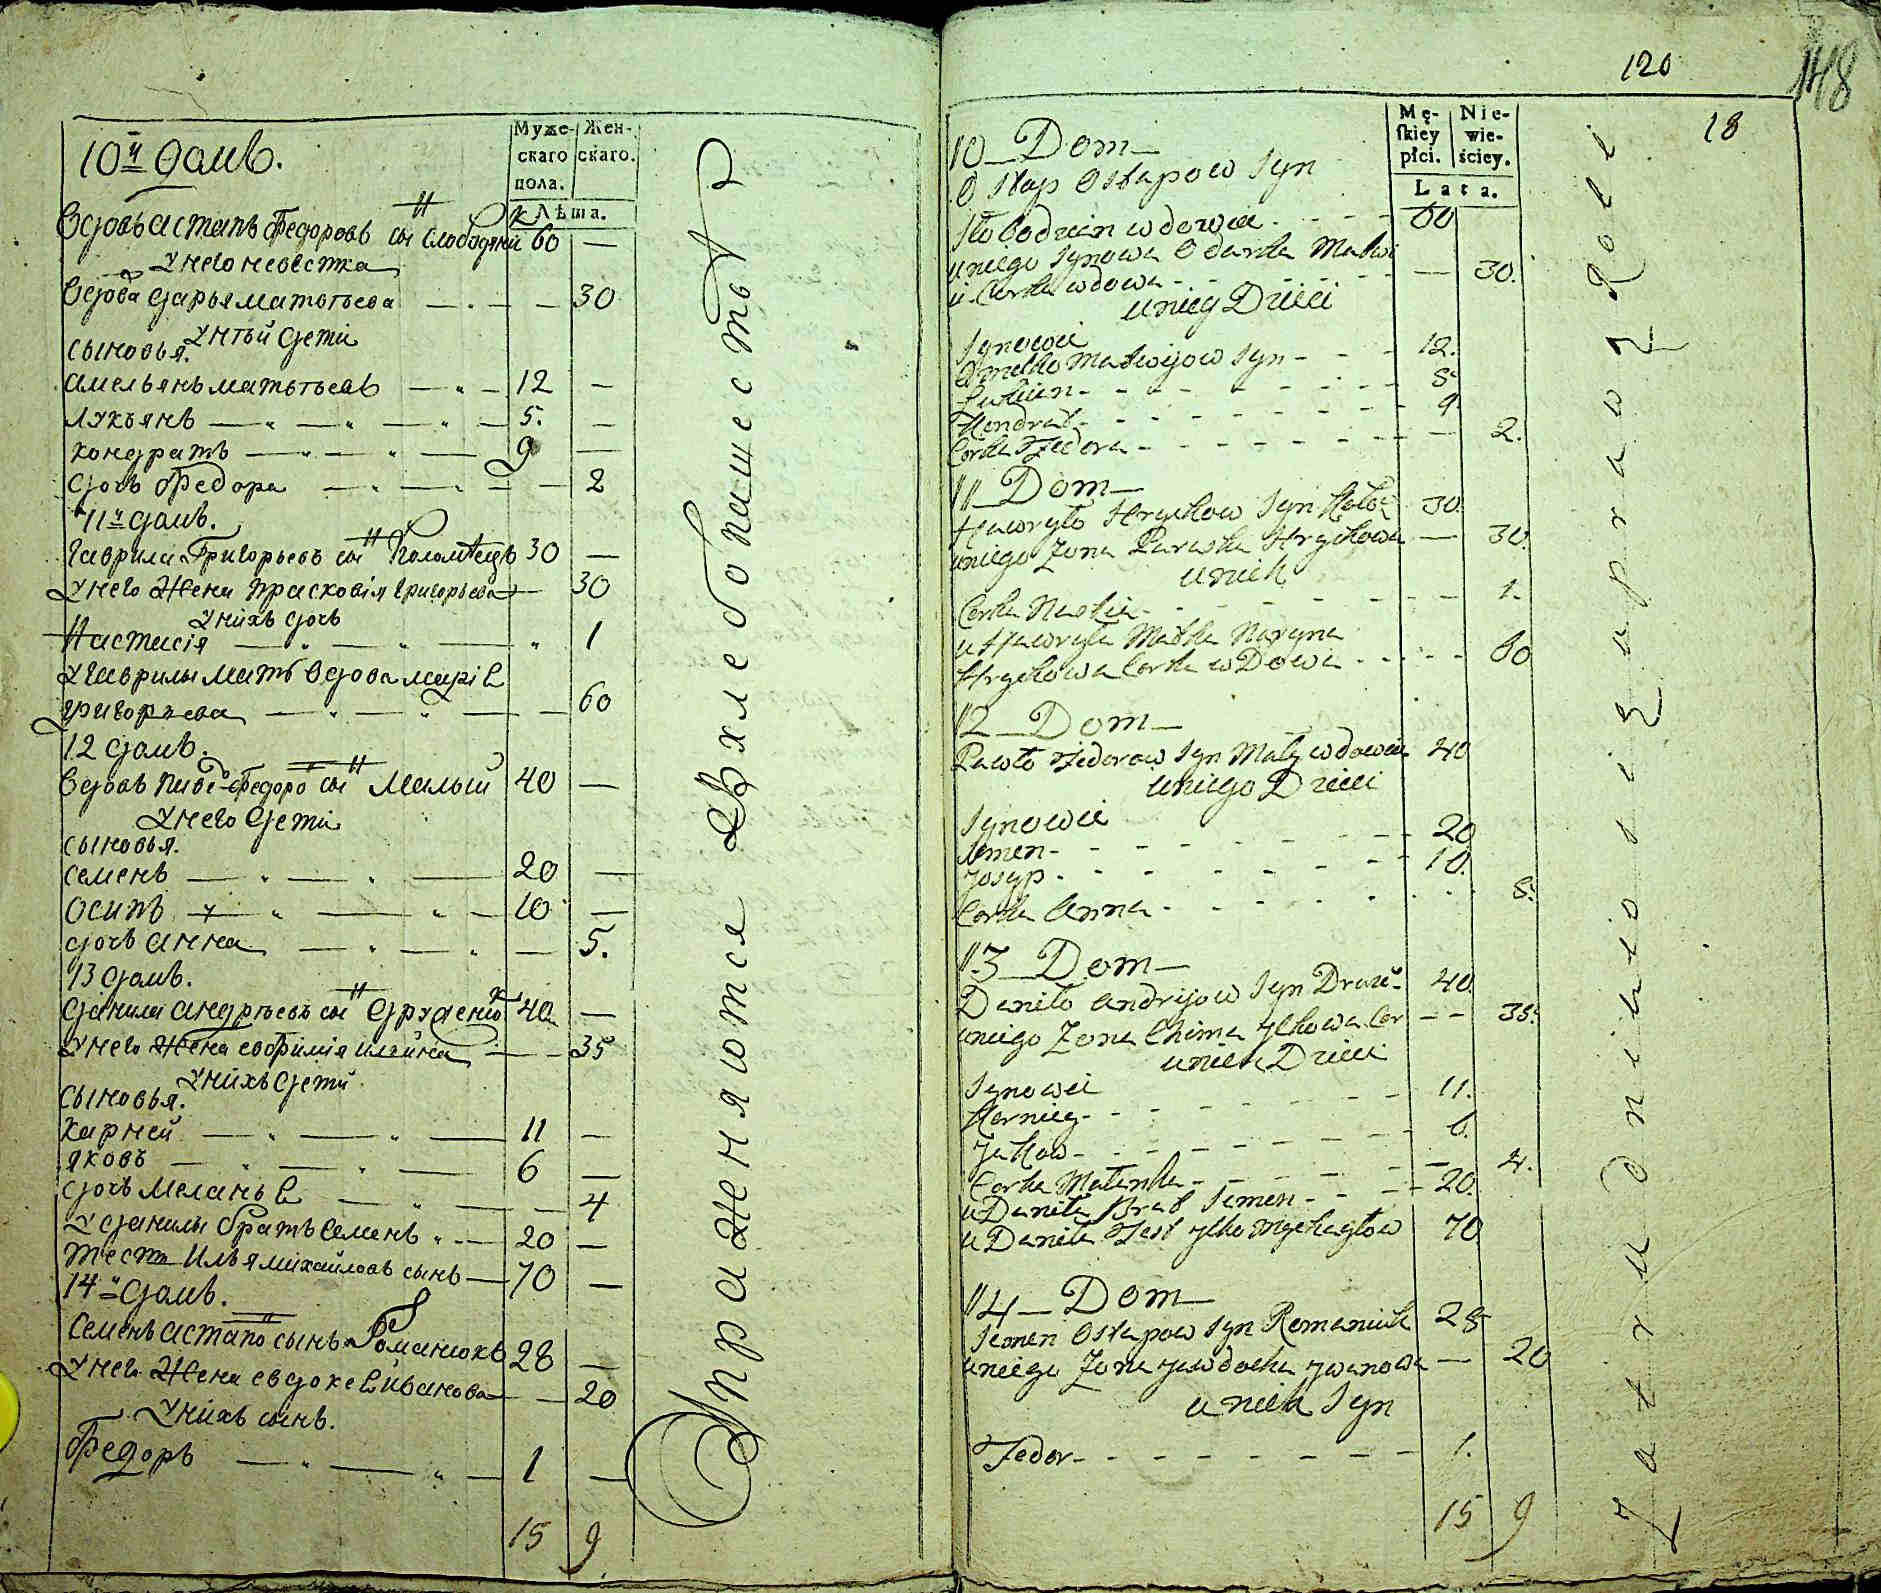 Муже-
скаго
пола.
Жен-
скаго.
Лѣта.
10й домъ.
Вдовъ Астапъ Федоровъ сы Слободяникъ 60 —
У него невестка
Вдова Дарья Матвѣева — 30
У нѣй дети
сыновья.
Амельянъ Матвѣевъ 12 —
Лукъянъ 5. —
Кондратъ 9 —
дочь Федора — 2
11й домъ.
Гаврила Григорьевъ сы Коломѣецъ 30 —
У него жена Прасковія Григорьева — 30
У нихъ дочь
Настасія 1
У Гаврилы мать вдова
Григорьева — 60
12 домъ.
Вдовъ Федоро сы Малый 40 —
У него дети
сыновья.
Семенъ 20 —
Осипъ 10 —
дочь Анна — 5.
13 домъ.
Данила Андрѣевъ сы 40 —
У него жена Евфимія Ильина — 35
У нихъ дети
сыновья.
Карней 11 —
Яковъ 6 —
дочь — 4
У Данилы братъ Семенъ 20 —
тесть Илья Михайловъ сынъ 70 —
14й домъ.
Семенъ Астапо сынъ Романюкъ 28 —
У него жена Иванова — 20
У нихъ сынъ.
Федоръ 1 —
15 9
Упражняются въ хлебопашествѣ
120
148
18
Mę-
ſkiey
płci.
Nie-
wie-
ściey.
Lata.
10 Dom
Ostap Ostapow Syn
wdowiec 60
u niego Synowa Odarka Matwi
i Corka wdowa — 30.
u niey Dzieci
Synowie
Omelko Matwijow Syn 12.
Łukian 5
Kondrat 9
Corka Fedora — 2.
11 Dom
Hawryło Hryckow Syn 30.
u niego Zona Paraska Hryckowa — 30.
u nich
Corka Nastia — 1.
u Hawryła Matka
Hryckowa Corka wdowa 60
12 Dom
Pawło Fedorow Syn Mały wdowiec 40
u niego Dzieci
Synowie
Semen 20
Josyp 10.
Corka Anna 5.
13 Dom
Daniło Andrijow Syn 40
u niego Zona Chima Jlkowa Cor — 35.
u nich Dzieci
Synowie
Korniey 11.
Jakow 6.
Corka Małanka — 4.
u Daniła Brat Semen 20.
u Daniła Test Jlko Mychayłow 70
14 Dom
Semen Ostapow Syn Romaniuk 28
u niego Zona Jawdocha Jwanowa — 20
u nich Syn
Fedor 1.
15 9
Zatrudnia się Uprawą Roli